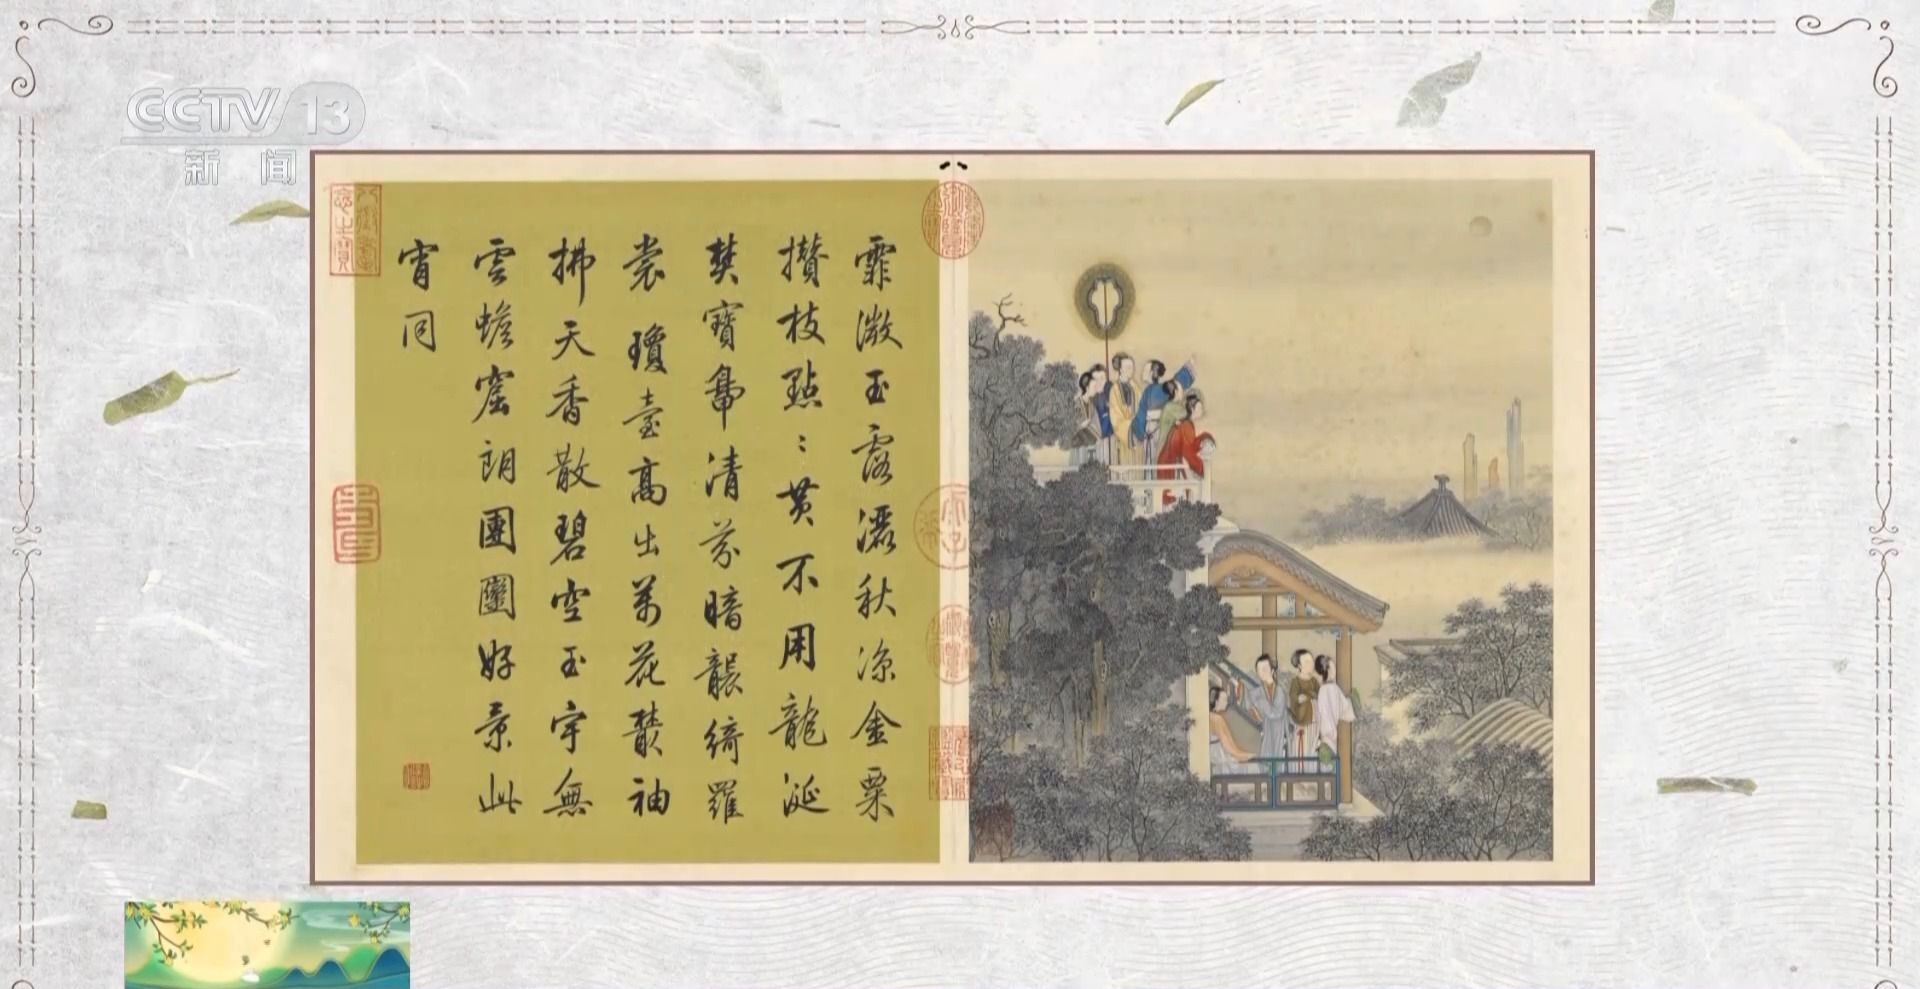 CCTV 13
新闻
霏微玉露灑秋涼金粟
攢枝點〻黃不用龍涎
焚寶鼎清芬暗襲綺羅
裳 瓊臺高出萬花叢袖
拂天香散碧空玉宇無
雲蟾窟朗團圞好景此
宵同
八徵耄念之寶